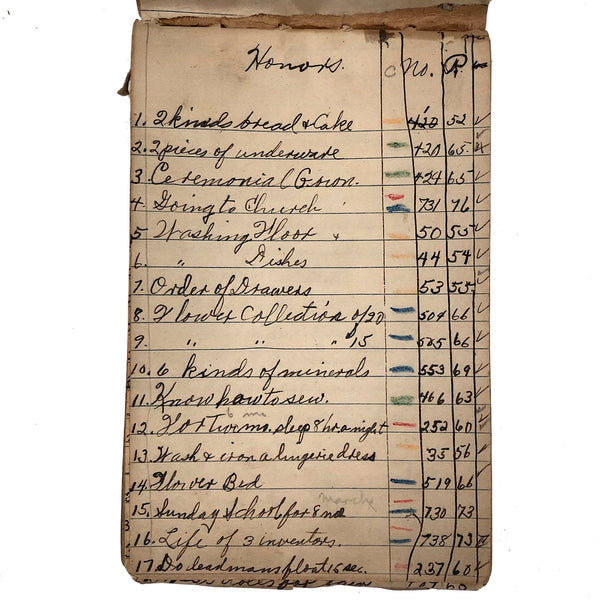 Honors. C No. P.
1. 2 kinds bread & Cake 420 52
2. 2 pieces of underware 420 65
3 Ceremonial Gown. 424 65
4. Going to Church 731 76
5 Washing Floor 50 53
6. " Dishes 44 54
7. Order of Drawers 53 55
8. Flower Collection of 20 504 66
9. " " " 15 525 66
10. 6 kinds of minerals 553 69
11. Know how to sew. 466 63
6 mo
12. For two mo. sleep 8 hr a night 252 60
13. Wash & iron a lingerie dress 35 56
14. Flower Bed 519 66
March
15. Sunday School for 8 730 73
16. Life of 3 inventors. 738 73
17. Do deadmans float 15 sec. 237 60